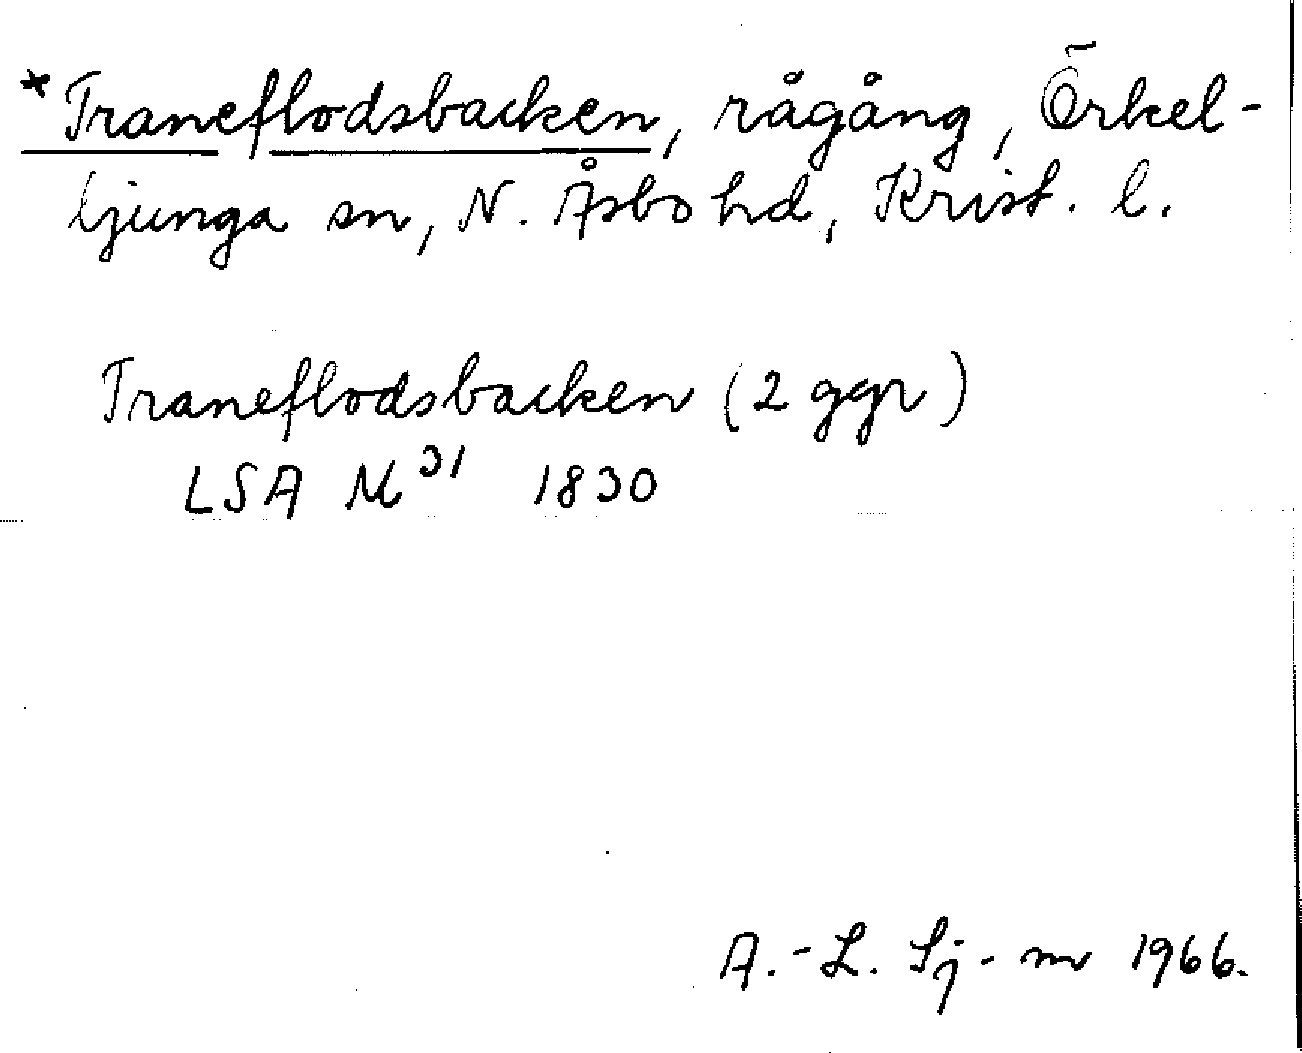 *Traneflodsbacken, rågång, Örkel-
ljunga sn, N. Åsbo hd, Krist. l.
Traneflodsbacken (2 ggr)
LSA 31 1830
A.-L. Sj-m 1966.